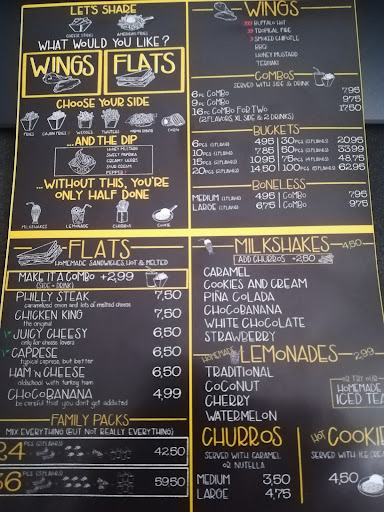 LET'S SHARE
CHEESE FRIES
AMERICAN FRIES
WHAT WOULD YOU LIKE?
WINGS
FLATS
CHOOSE YOUR SIDE
FRIES
CAJUN FRIES
WEDGES
TWISTERS
ONION RINGS
...AND THE DIP
HONEY MUSTARD
SWEET PAPRIKA
CREAMY HERBS
SOUR CREAM
PEPPER
...WITHOUT THIS, YOU'RE
ONLY HALF DONE
MILKSHAKES
LEMONADE
CHURROS
COOKIE
WINGS
BUFFALO HOT
TROPICAL FIRE
SMOKED CHIPOTLE
BBQ
HONEY MUSTARD
TERIYAKI
COMBOS
SERVED WITH SIDE & DRINK
6 PC COMBO 7.95
9 PC COMBO 9.75
16 PC COMBO FOR TWO 17.50
(2 FLAVORS, XL SIDE & 2 DRINKS)
BUCKETS
6 PCS (1 FLAVOR) 4.95 | 30 PCS 20.95
10 PCS 7.85 | 50 PCS 33.99
15 PCS 10.95 | 75 PCS 48.75
20 PCS 14.50 | 100 PCS 62.95
BONELESS
MEDIUM 4.95 | COMBO 7.50
LARGE 6.75 | COMBO 9.75
FLATS
HOMEMADE SANDWICHES, HOT & MELTED
MAKE IT A COMBO +2,99
(SIDE + DRINK)
PHILLY STEAK 7,50
caramelized onion and lots of melted cheese
CHICKEN KING 7,50
the original
JUICY CHEESY 6,50
only for cheese lovers
CAPRESE 6,50
typical caprese, but better
HAM N CHEESE 6,50
oldschool with turkey ham
CHOCOBANANA 4,99
be careful that you dont get addicted
FAMILY PACKS
MIX EVERYTHING (BUT NOT REALLY EVERYTHING)
24 PCS 42.50
36 PCS 59.50
MILKSHAKES 4,50
ADD CHURROS +2,50
CARAMEL
COOKIES AND CREAM
PIÑA COLADA
CHOCOBANANA
WHITE CHOCOLATE
STRAWBERRY
HOMEMADE
LEMONADES 2,99
TRADITIONAL
COCONUT
CHERRY
WATERMELON
OR TRY OUR
HOMEMADE
ICED TEA
CHURROS
SERVED WITH CARAMEL
OR NUTELLA
MEDIUM 3,50
LARGE 4,75
HOT COOKIE
SERVED WITH ICE CREAM
4,50